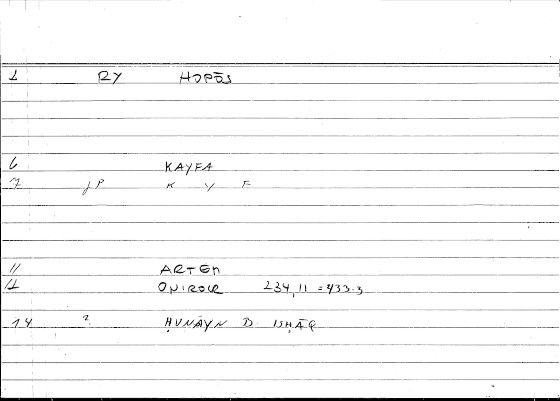 1 RY HOPŌS
6 KAYFA
7 jP K Y F
11 ARTEM
12 ONIROCR 234,11 = 433.3
14 ? ḤUNĀYN B ISḤĀQ